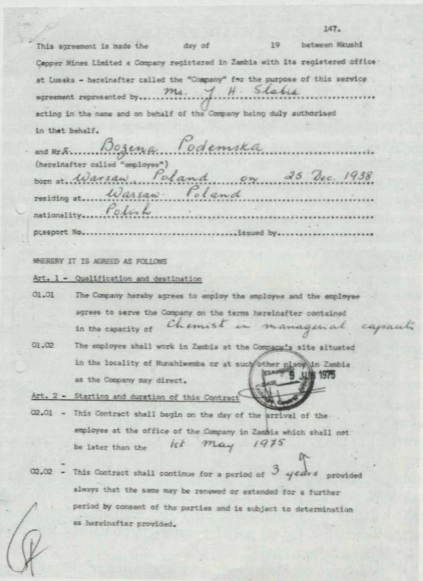 147.
This agreement is made the day of 19 between Mkushi
Copper Mines Limited a Company registered in Zambia with its registered office
at Lusaka - hereinafter called the "Company" for the purpose of this service
agreement represented by Mr. J H.
acting in the name and on behalf of the Company being duly authorised
in that behalf.
and Mrs. Bozena Podemska
(hereinafter called "employee")
born at Warsaw, Poland on 25 Dec. 1938
residing at Warsaw Poland
nationality Polish
passport No. issued by
WHEREBY IT IS AGREED AS FOLLOWS
Art. 1 - Qualification and destination
01.01 The Company hereby agrees to employ the employee and the employee
agrees to serve the Company on the terms hereinafter contained
in the capacity of Chemist in managerial capacity
01.02 The employee shall work in Zambia at the Company's site situated
in the locality of Munshiwemba or at such other place in Zambia
as the Company may direct.
9 JUN 1975
Art. 2 - Starting and duration of this Contract
02.01 - This Contract shall begin on the day of the arrival of the
employee at the office of the Company in Zambia which shall not
be later than the 1st May 1975
02.02 - This Contract shall continue for a period of 3 years provided
always that the same may be renewed or extended for a further
period by consent of the parties and is subject to determination
as hereinafter provided.